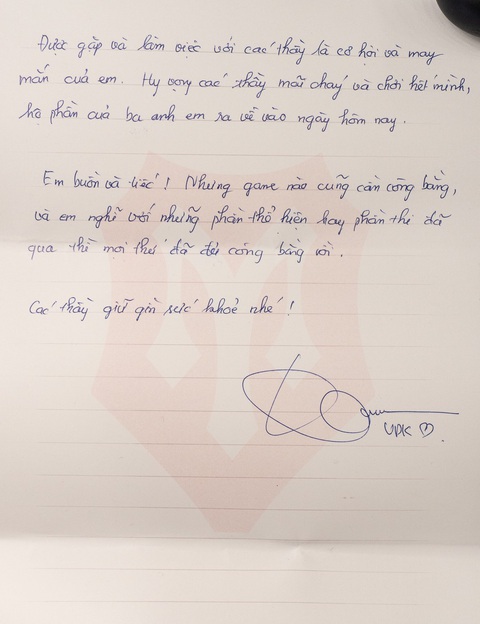 Được gặp và làm việc với các thầy là cơ hội và may
mắn của em. Hy vọng các thầy mãi cháy và chơi hết mình,
họ phần của ba anh em ra về vào ngày hôm nay.
Em buồn và tiếc! Nhưng game nào cũng cần công bằng,
và em nghĩ với những phần thể hiện hay phần thi đã
qua thì mọi thứ đã đủ công bằng rồi.
Các thầy giữ gìn sức khoẻ nhé!
UPK